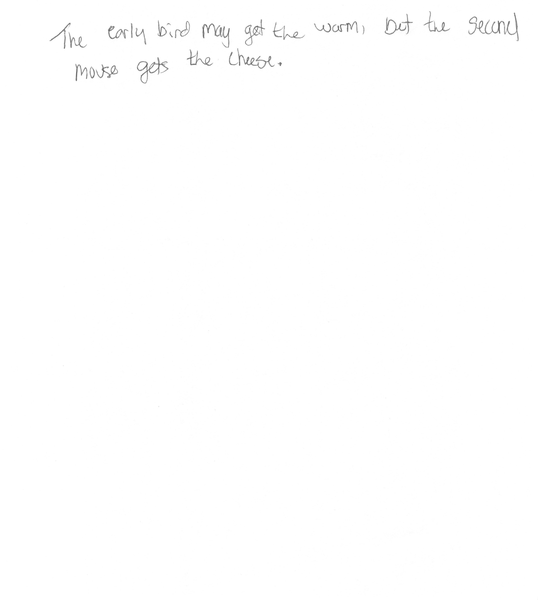 The early bird may get the warm, but the second
mouse gets the cheese.